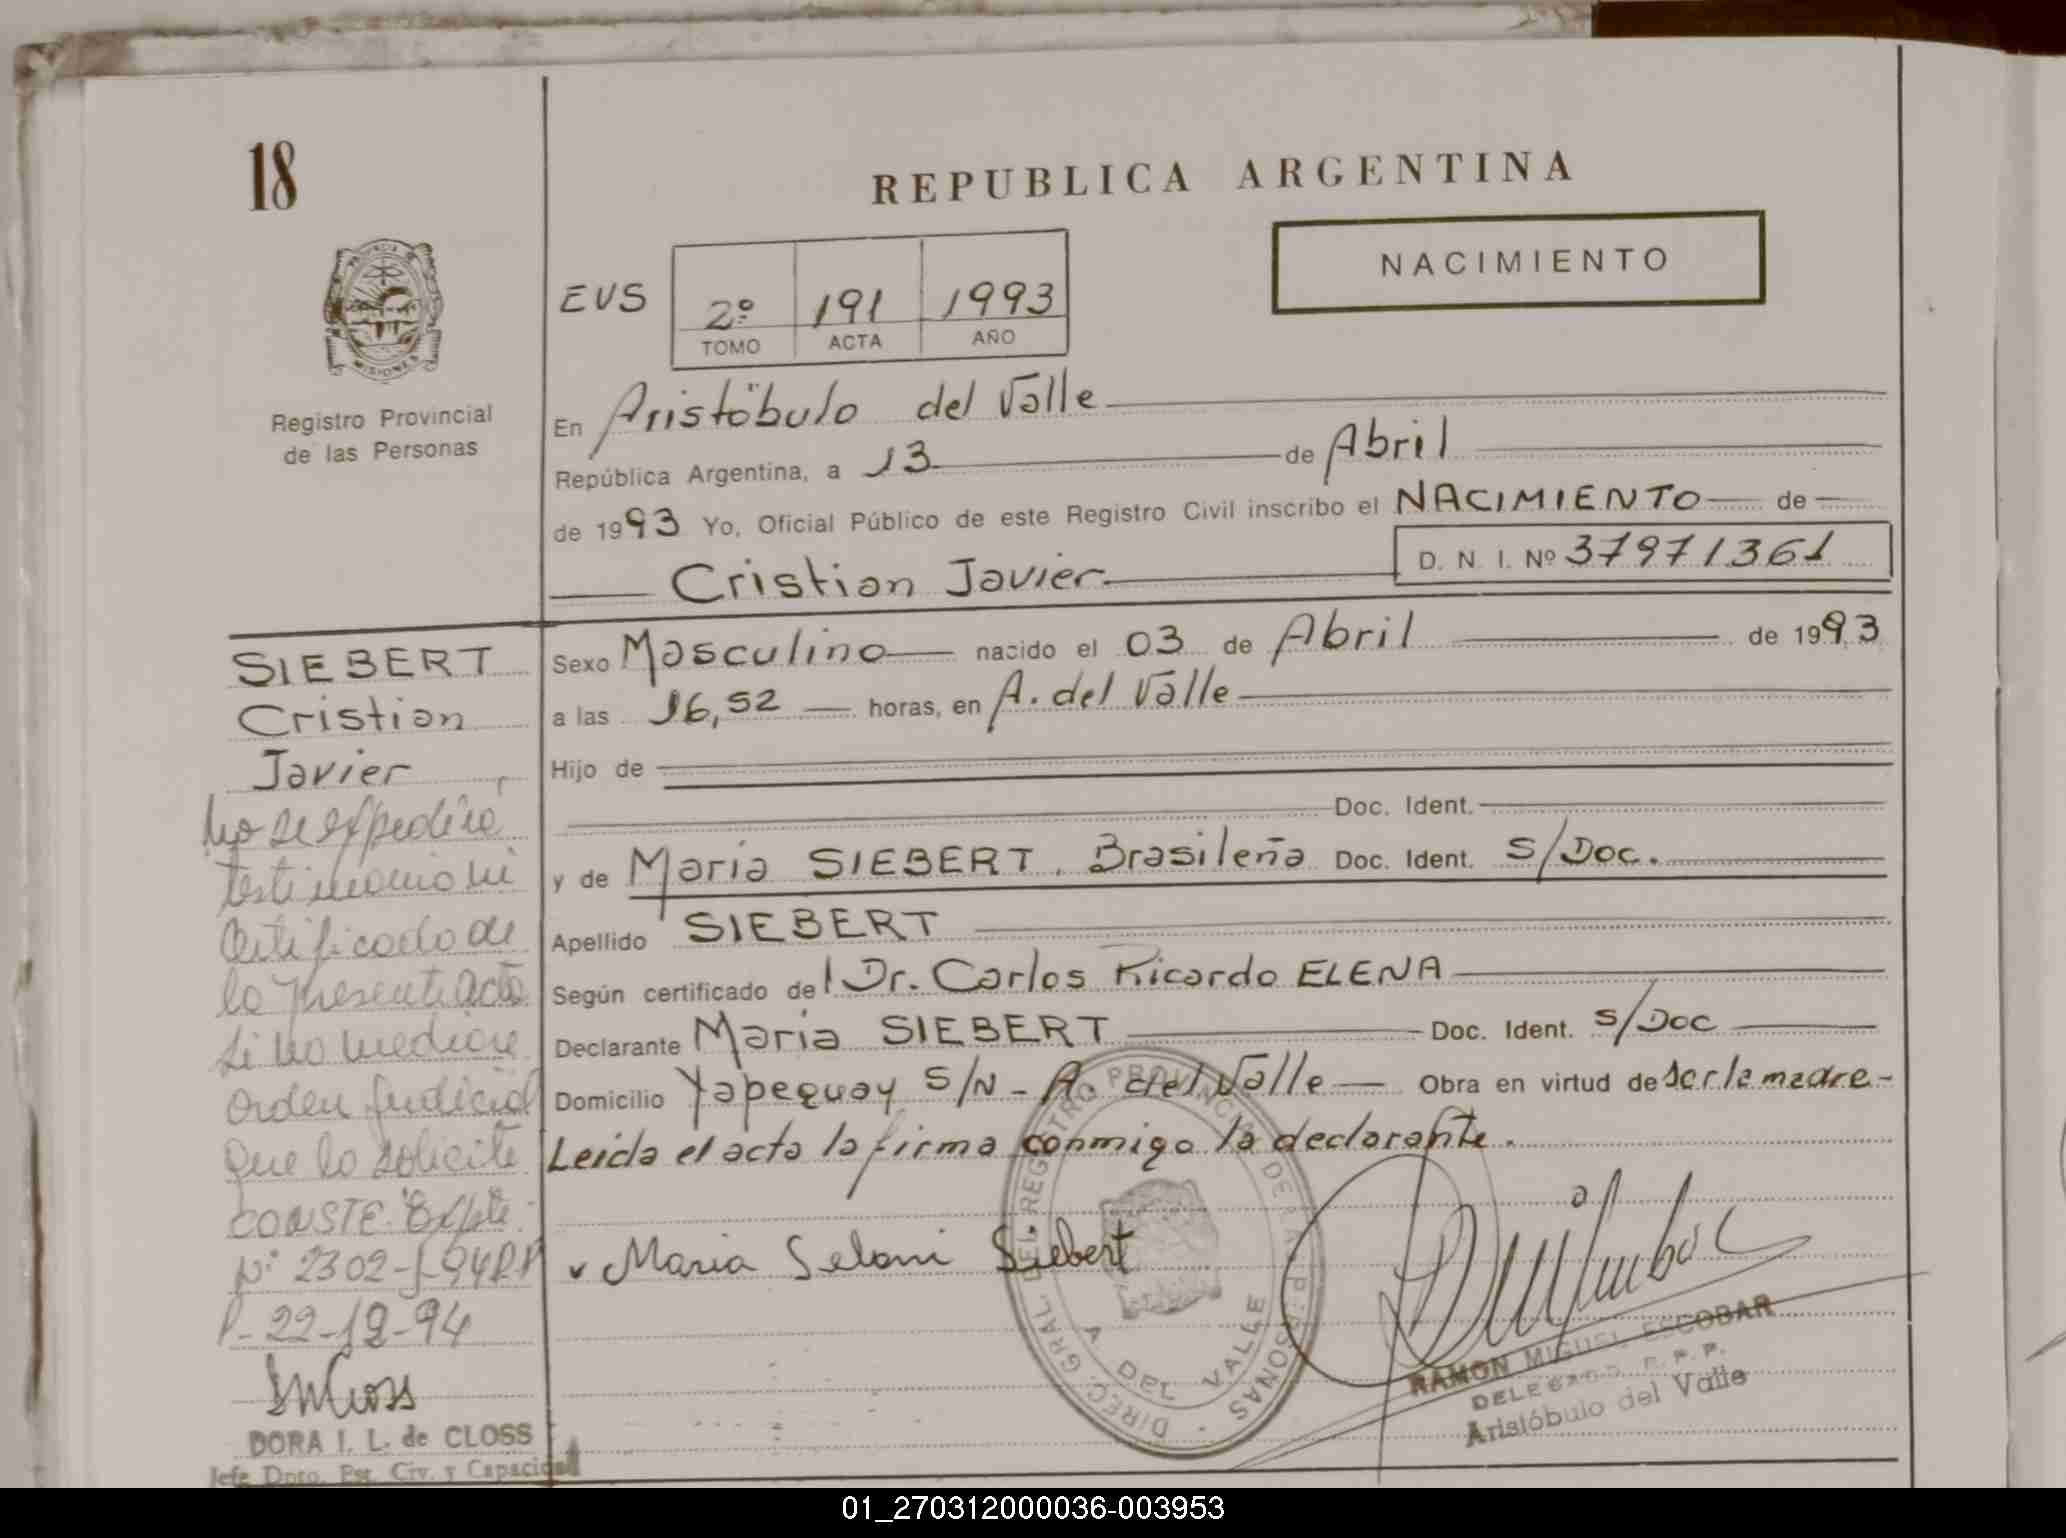 18
REPUBLICA ARGENTINA
NACIMIENTO
EVS
2º 191 1993
TOMO ACTA AÑO
PROVINCIA DE
MISIONES
Registro Provincial
de las Personas
En Aristóbulo del Valle
República Argentina, a 13 de Abril
de 1993 Yo, Oficial Público de este Registro Civil inscribo el NACIMIENTO de
Cristian Javier D. N. I. Nº 37971361
SIEBERT
Cristian
Javier
No se expedirá
testimonio ni
Certificado de
la presente acta
si no mediare
orden judicial
que lo solicite
CONSTE. Expte.
Nº 2302-
22-12-94
DORA I. L. de CLOSS
Jefe Dpto. Est. Civ. y Capacidad
Sexo Masculino nacido el 03 de Abril de 1993
a las 16,52 horas, en A. del Valle
Hijo de
Doc. Ident.
y de Maria SIEBERT, Brasileña Doc. Ident. S/Doc.
Apellido SIEBERT
Según certificado del Dr. Carlos Ricardo ELENA
Declarante Maria SIEBERT Doc. Ident. S/Doc
Domicilio Yapeguay S/N - A. del Valle Obra en virtud de ser la madre-
Leída el acta la firma conmigo la declarante.
Maria Seloni Siebert
DIREC. GRAL. DEL REGISTRO PROVINCIAL DE LAS PERSONAS
A DEL VALLE
RAMON MIGUEL ESCOBAR
DELEGADO R. P. P.
Aristóbulo del Valle
01_270312000036-003953